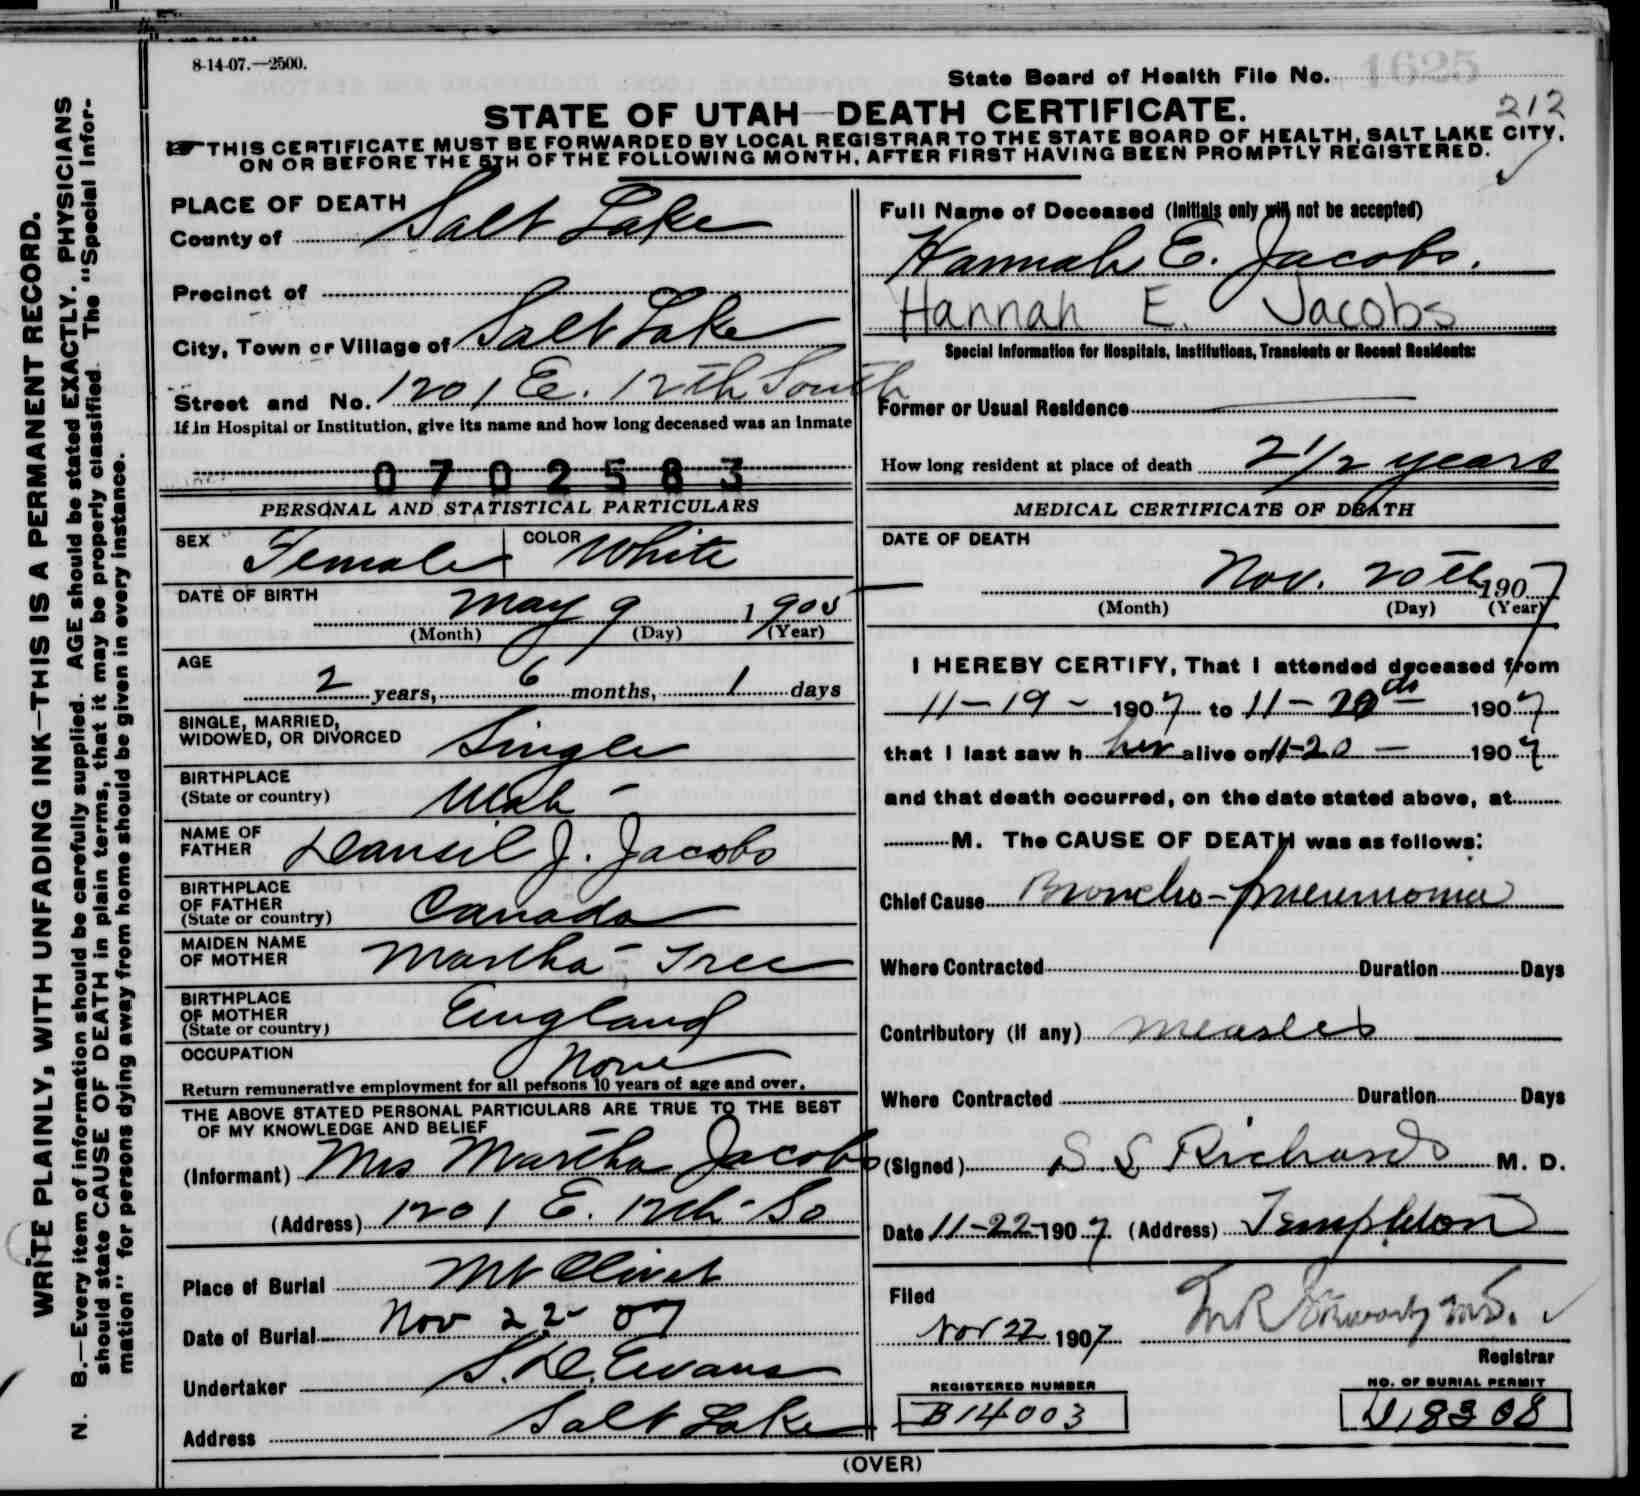 8-14-07.—2500.
State Board of Health File No. 1625
212
STATE OF UTAH—DEATH CERTIFICATE.
THIS CERTIFICATE MUST BE FORWARDED BY LOCAL REGISTRAR TO THE STATE BOARD OF HEALTH, SALT LAKE CITY,
ON OR BEFORE THE 5TH OF THE FOLLOWING MONTH, AFTER FIRST HAVING BEEN PROMPTLY REGISTERED.
WRITE PLAINLY, WITH UNFADING INK—THIS IS A PERMANENT RECORD.
N. B.—Every item of information should be carefully supplied. AGE should be stated EXACTLY. PHYSICIANS
should state CAUSE OF DEATH in plain terms, that it may be properly classified. The "Special Infor-
mation" for persons dying away from home should be given in every instance.
PLACE OF DEATH
County of Salt Lake
Precinct of
City, Town or Village of Salt Lake
Street and No. 1201 E. 12th South
If in Hospital or Institution, give its name and how long deceased was an inmate
0702583
PERSONAL AND STATISTICAL PARTICULARS
SEX Female COLOR White
DATE OF BIRTH
May 9 1905
(Month) (Day) (Year)
AGE
2 years, 6 months, 1 days
SINGLE, MARRIED,
WIDOWED, OR DIVORCED Single
BIRTHPLACE
(State or country) Utah
NAME OF
FATHER Daniel J. Jacobs
BIRTHPLACE
OF FATHER
(State or country) Canada
MAIDEN NAME
OF MOTHER Martha Tree
BIRTHPLACE
OF MOTHER
(State or country) England
OCCUPATION None
Return remunerative employment for all persons 10 years of age and over.
THE ABOVE STATED PERSONAL PARTICULARS ARE TRUE TO THE BEST
OF MY KNOWLEDGE AND BELIEF
(Informant) Mrs Martha Jacobs
(Address) 1201 E. 12th So
Place of Burial Mt Olivet
Date of Burial Nov 22 07
Undertaker S. D. Evans
Address Salt Lake
Full Name of Deceased (Initials only will not be accepted)
Hannah E. Jacobs.
Hannah E. Jacobs
Special Information for Hospitals, Institutions, Transients or Recent Residents:
Former or Usual Residence
How long resident at place of death 2 1/2 years
MEDICAL CERTIFICATE OF DEATH
DATE OF DEATH
Nov. 20th 1907
(Month) (Day) (Year)
I HEREBY CERTIFY, That I attended deceased from
11-19- 1907 to 11-20th 1907
that I last saw h her alive on 11-20 — 1907
and that death occurred, on the date stated above, at
M. The CAUSE OF DEATH was as follows:
Chief Cause Broncho-pneumonia
Where Contracted Duration Days
Contributory (if any) measles
Where Contracted Duration Days
(Signed) S S Richards M. D.
Date 11-22-1907. (Address) Templeton
Filed
Nov 22 1907
Registrar
REGISTERED NUMBER
B14003
NO. OF BURIAL PERMIT
(OVER)